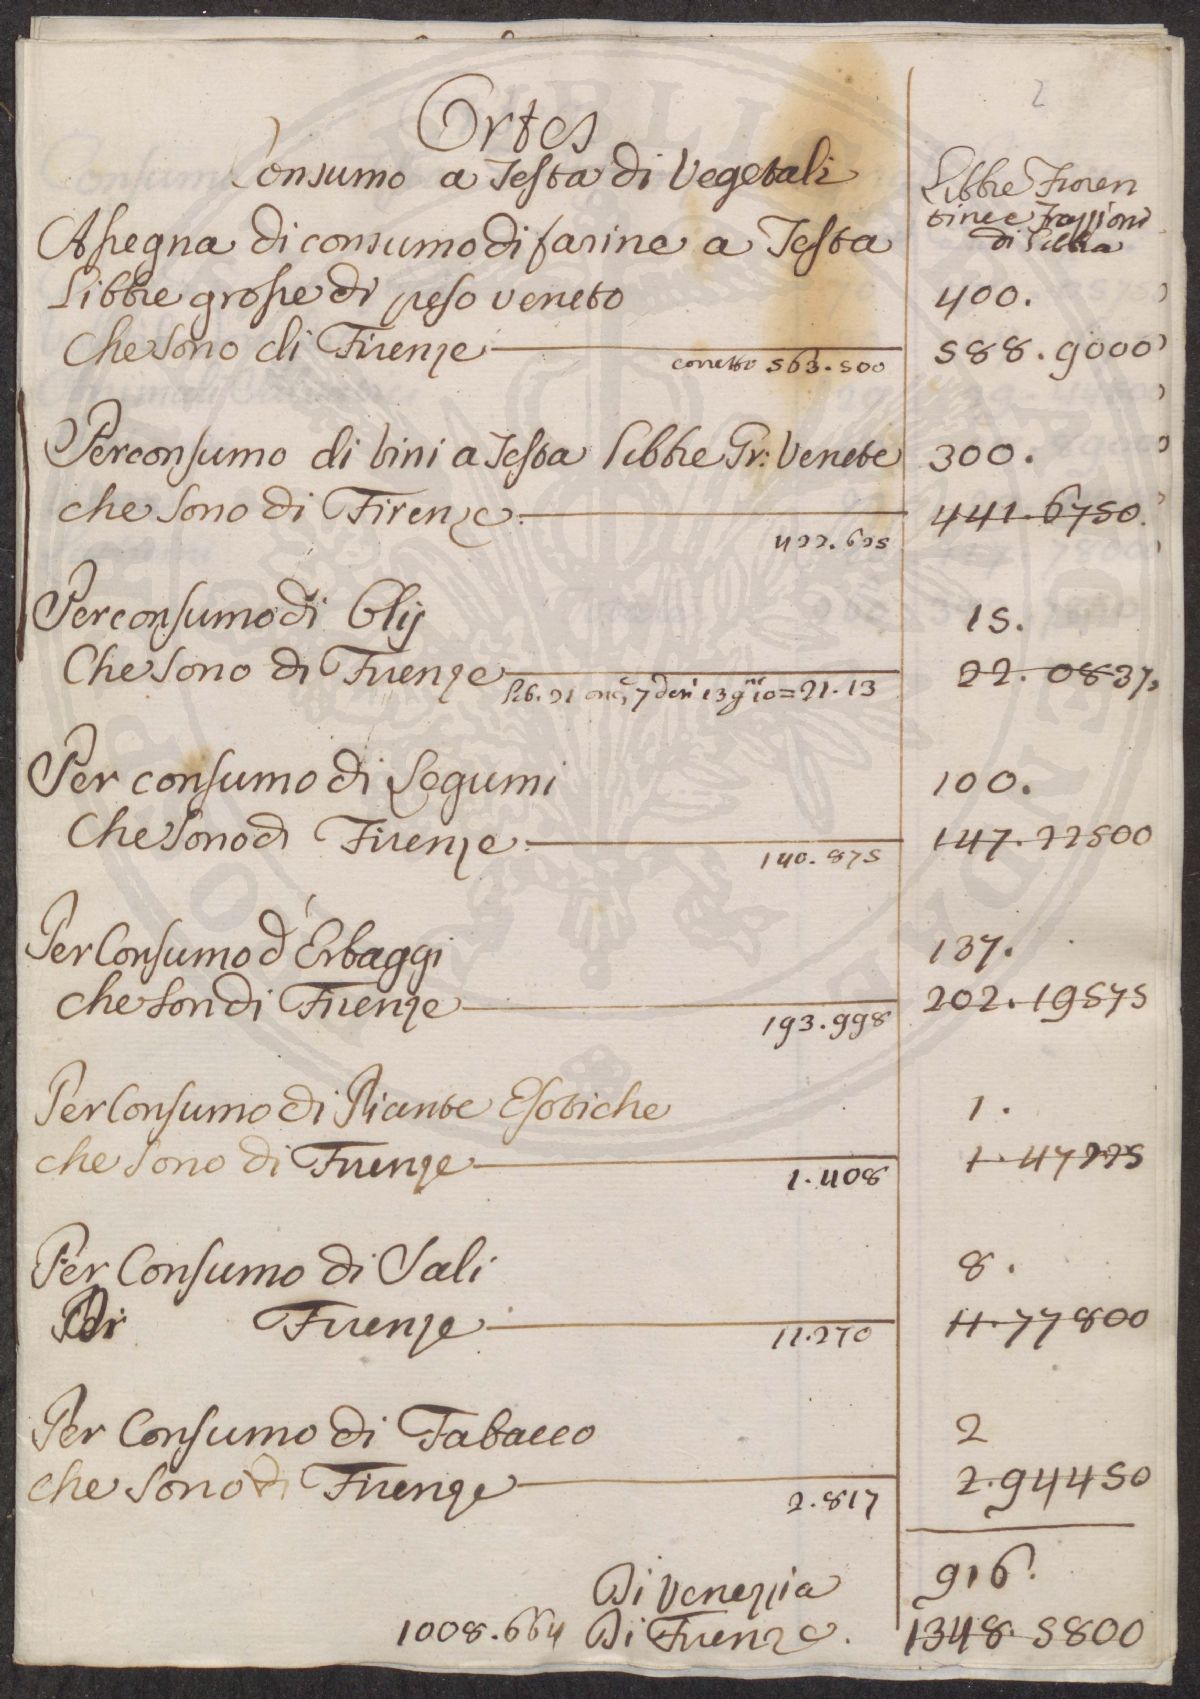 2
Ortes
Consumo a Testa di Vegetali
Libbre Fioren
tine e frazzioni
di Libbra
Assegna di consumo di farine a Testa
Libbre grosse di peso veneto 400.
Che Sono di Firenze corretto 563.500 588.9000
Per consumo di vini a Testa Libbre Gr: Venete 300.
che Sono di Firenze. 422.625 441.6750.
Per consumo di Olij 15.
Che Sono di Firenze Lib. 21 onc. 7 den 13 g 10 = 21.13 22.0837
Per consumo di Legumi 100.
Che Sono di Firenze. 140.875 147.22500
Per Consumo d'Erbaggi 137.
che Son di Firenze 193.998 202.19575
Per Consumo di Piante Esotiche 1.
che Sono di Firenze 1.408 1.47225
Per Consumo di Sali 8.
Di Firenze 11.270 11.77800
Per Consumo di Tabacco 2
che Sono di Firenze 2.817 2.94450
Di Venezzia 916.
1008.664 Di Firenze. 1348.5800